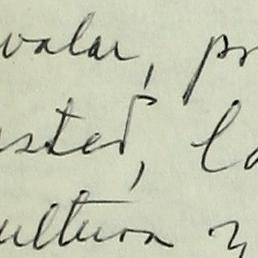 valar, pr
usted, la
cultura y